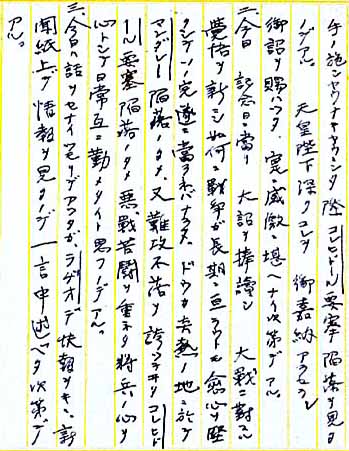 手ノ施シヤウナキヤウナリシ際 コレヒドール要塞ノ陥落ヲ見タ
ノデアル。 天皇陛下深クコレヲ 御嘉納アラセラレ
御詔ヲ賜ハツタ。寔ニ感激ニ堪ヘナイ次第デアル。
二、今日 記念日ニ當リ 大詔ヲ捧讀シ 大戰ニ對スル
覺悟ヲ新ニシ如何ニ戰爭ガ長期ニ亘ラウトモ愈心ヲ堅
クシテソノ完遂ニ當ラネバナラヌ。ドウカ炎熱ノ地ニ於テ
マンダレー陥落ノタメ又難攻不落ヲ誇ツテヰタコレヒド
ール要塞陥落ノタメ悪戰苦闘ヲ重ネタ将兵ノ心ヲ
心トシテ日常互ニ勤メタイト思フノデアル。
三、今日ハ話ヲセナイツモリデアツタガ、ラヂオデ快報ヲキキ、新
聞紙上デ情報ヲ見タノデ一言申述ベタ次第デ
アル。